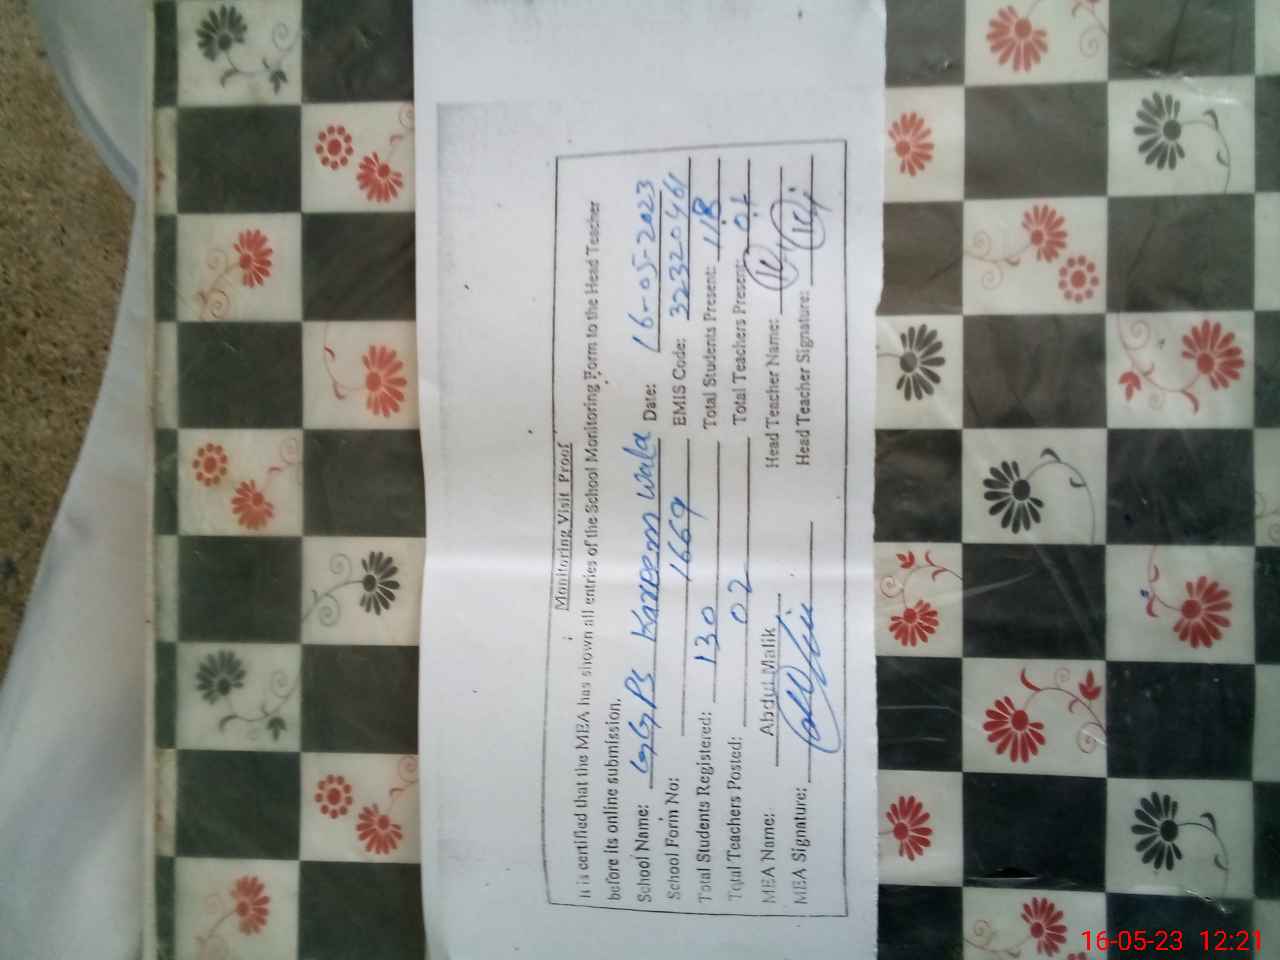 Monitoring Visit Proof
It is certified that the MEA has shown all entries of the School Monitoring Form to the Head Teacher
before its online submission.
School Name: GGPS Kareem Wala Date: 16-05-2023
School Form No: 1669 EMIS Code: 32320461
Total Students Registered: 130 Total Students Present: 118
Total Teachers Posted: 02 Total Teachers Present:
MEA Name: Abdul Malik Head Teacher Name:
MEA Signature: Head Teacher Signature:
16-05-23 12:21